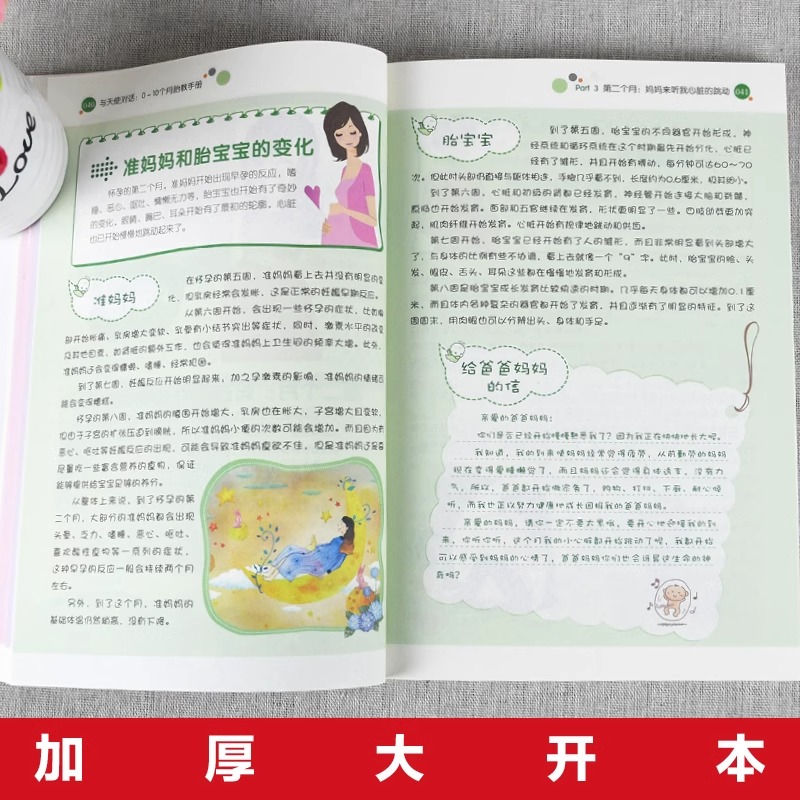 040 与天使对话：0-10个月胎教手册
准妈妈和胎宝宝的变化
怀孕的第二个月，准妈妈开始出现早孕的反应，嗜
睡、恶心、呕吐、慵懒无力等，胎宝宝也开始有了奇妙
的变化，眼睛、嘴巴、耳朵开始有了最初的轮廓，心脏
也已开始慢慢地跳动起来了。
准妈妈
在怀孕的第五周，准妈妈看上去并没有明显的变
化，但乳房经常会发胀，这是正常的妊娠早期反应。
从第六周开始，会出现一些怀孕的症状，比如胸
部开始疼痛、乳房增大变软、乳晕有小结节突出等症状，同时，激素水平的改变
及其他因素，如肾脏的额外工作，也会使得准妈妈上卫生间的频率大增。此外，
准妈妈还会变得慵懒、嗜睡、经常犯困。
到了第七周，妊娠反应开始明显起来，加之孕激素的影响，准妈妈的情绪可
能会变得糟糕。
怀孕的第八周，准妈妈的腰围开始增大，乳房也在胀大，子宫增大且变软，
但由于子宫的扩张压迫到膀胱，所以准妈妈小便的次数可能会增加。而且因为有
恶心、呕吐等妊娠反应的出现，可能会导致准妈妈食欲不佳，但是准妈妈还是要
尽量吃一些富含营养的食物，保证
能够提供给宝宝足够的养分。
从整体上来说，到了怀孕的第
二个月，大部分的准妈妈都会出现
头晕、乏力、嗜睡、恶心、呕吐、
喜欢酸性食物等一系列的症状，
这种早孕的反应一般会持续两个月
左右。
另外，到了这个月，准妈妈的
基础体温仍然稍高，没有下降。
Part 3 第二个月：妈妈来听我心脏的跳动 041
胎宝宝
到了第五周，胎宝宝的不同器官开始形成，神
经系统和循环系统在这个时期最先开始分化，心脏已
经有了雏形，并且开始有搏动，每分钟可达60~70
次。但此时头部仍直接与躯体相连，手脚几乎看不到，长度约为0.6厘米，极其细小。
到了第六周，心脏和初级的肾都已经发育，神经管开始连接大脑和脊髓，
原肠也开始发育。面部和五官继续在发育，形状更明显了一些。四肢的芽更加突
起，肌肉纤维开始发育。心脏开始有规律地跳动和供血。
第七周开始，胎宝宝已经开始有了人的雏形，而且非常明显看到头部增大
了，与身体的比例有些不协调，看上去就像一个“9”字。此时，胎宝宝的脸、头
发、眼皮、舌头、耳朵这些都在慢慢地发育和形成。
第八周是胎宝宝成长发育比较快速的时期。几乎每天身体都可以增加0.1厘
米，而且体内的各种复杂的器官都开始了发育，并且逐渐有了明显的特征。到了这
周周末，用肉眼也可以分辨出头、身体和手足。
给爸爸妈妈
的信
亲爱的爸爸妈妈：
你们是否已经开始慢慢熟悉我了？因为我正在快快地长大呢。
我知道，我的到来使妈妈经常觉得疲劳，从前勤劳的妈妈
现在变得爱睡懒觉了，而且妈妈还会觉得身体透支，没有力
气，所以，爸爸都开始做家务了，购物、打扫、下厨、耐心倾
听，而我也正以努力健康地成长回报我的爸爸妈妈。
亲爱的妈妈，请你一定不要太累哦，要开心地迎接我的到
来，你听你听，这个月我的小心脏都开始跳动了呢，我都开始
可以感受到妈妈的心情了，爸爸妈妈你们也会讶异这生命的神
奇吗？
Love
加厚大开本